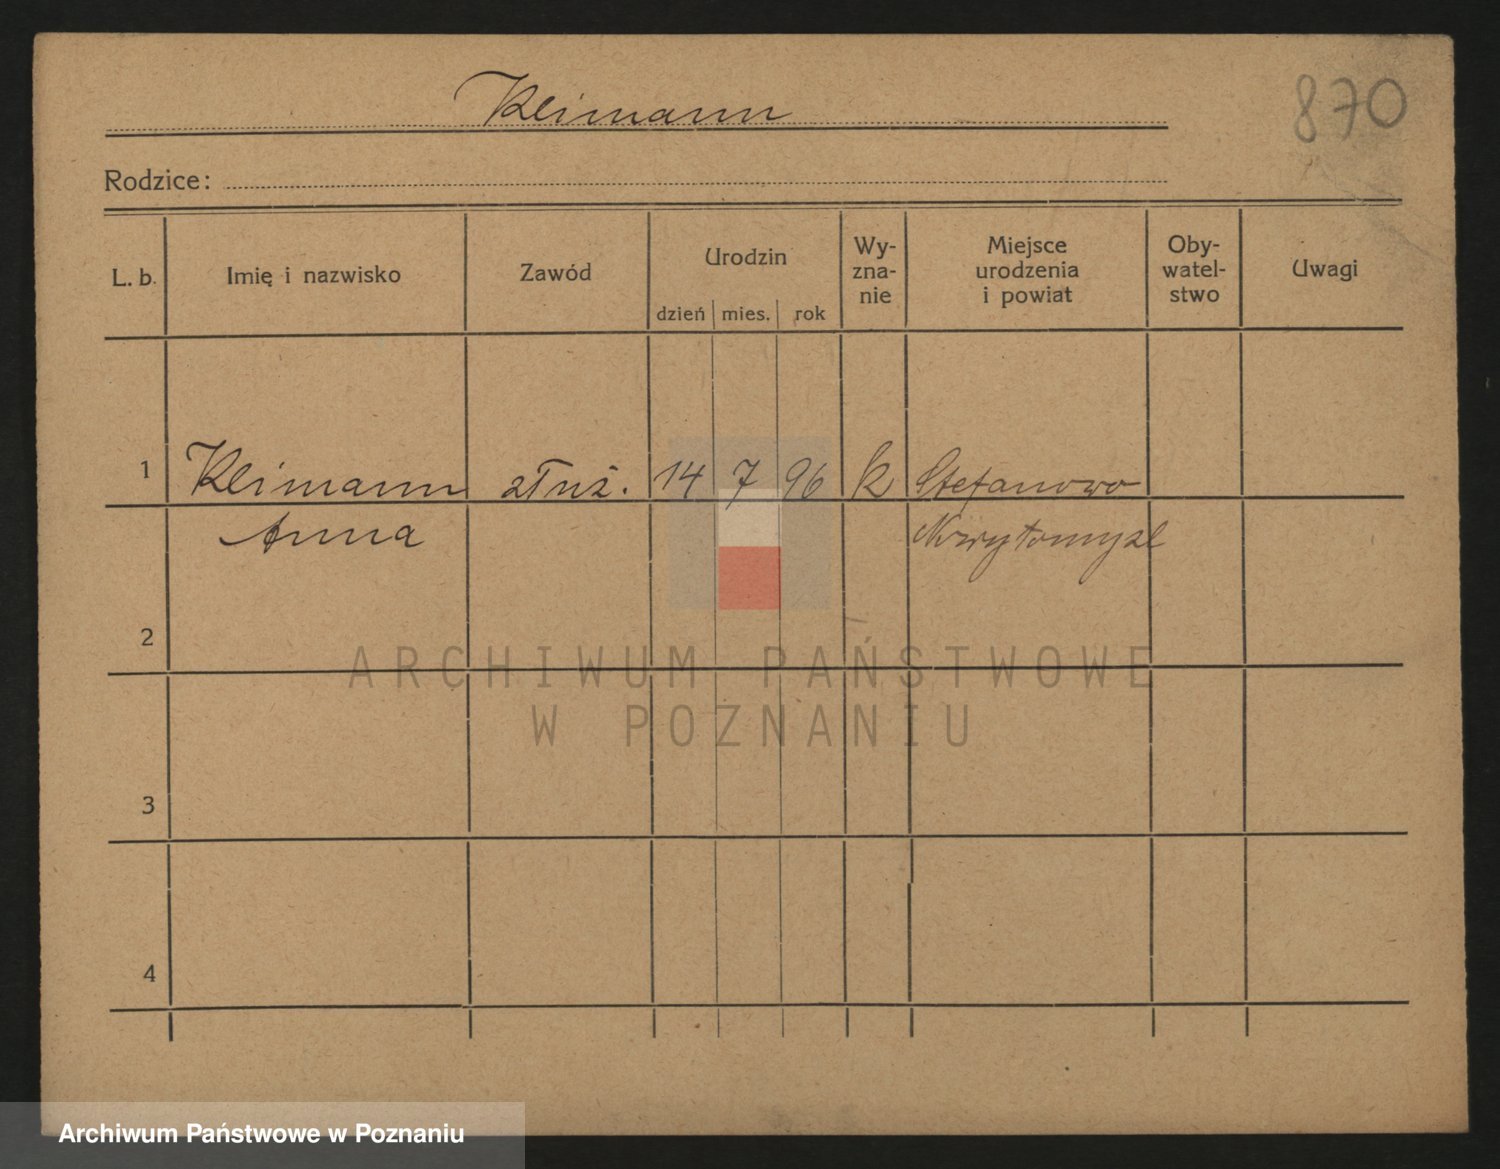 Kleimann
870
Rodzice:
L. b.
Imię i nazwisko
Zawód
Urodzin
dzień mies. rok
Wy-
zna-
nie
Miejsce
urodzenia
i powiat
Oby-
watel-
stwo
Uwagi
1 Kleimann służ. 14 7 96 k Stefanowo
Anna
2
3
4
ARCHIWUM PAŃSTWOWE
W POZNANIU
Archiwum Państwowe w Poznaniu